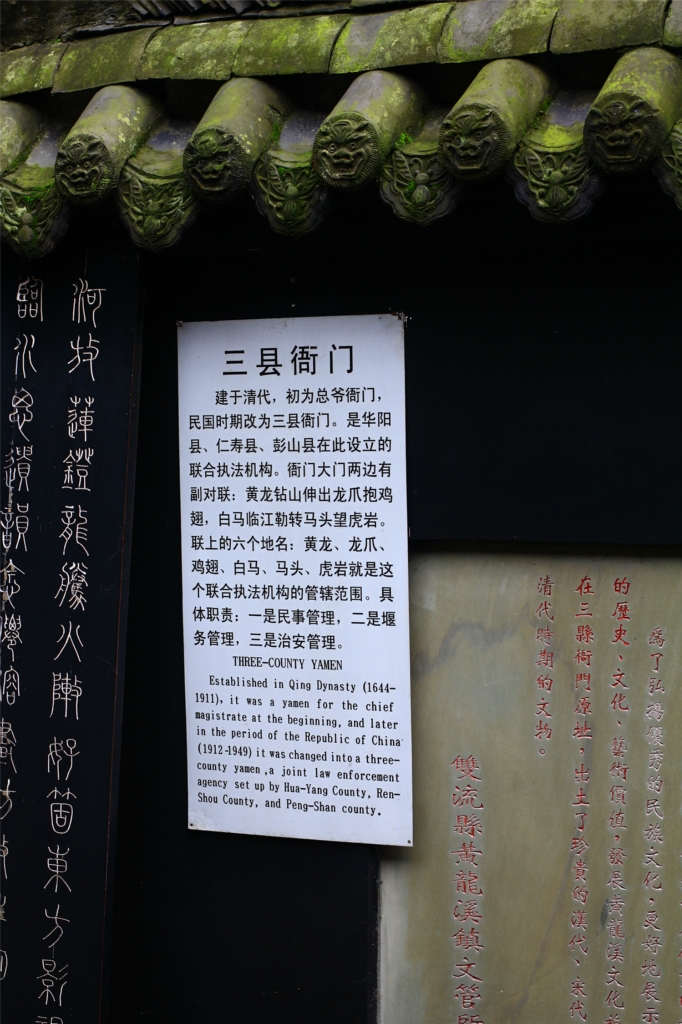 三县衙门
建于清代，初为总爷衙门，
民国时期改为三县衙门。是华阳
县、仁寿县、彭山县在此设立的
联合执法机构。衙门大门两边有
副对联：黄龙钻山伸出龙爪抱鸡
翅，白马临江勒转马头望虎岩。
联上的六个地名：黄龙、龙爪、
鸡翅、白马、马头、虎岩就是这
个联合执法机构的管辖范围。具
体职责：一是民事管理，二是堰
务管理，三是治安管理。
THREE-COUNTY YAMEN
Established in Qing Dynasty (1644-
1911), it was a yamen for the chief
magistrate at the beginning, and later
in the period of the Republic of China
(1912-1949) it was changed into a three-
county yamen ,a joint law enforcement
agency set up by Hua-Yang County, Ren-
Shou County, and Peng-Shan county.
為了弘揚優秀的民族文化，更好地展示
的歷史、文化、藝術價值，發展黃龍溪文化
在三縣衙門原址，出土了珍貴的漢代、宋代
清代時期的文物。
雙流縣黃龍溪鎮文管所
河放蓮鐙龍騰火陣好箇東方影